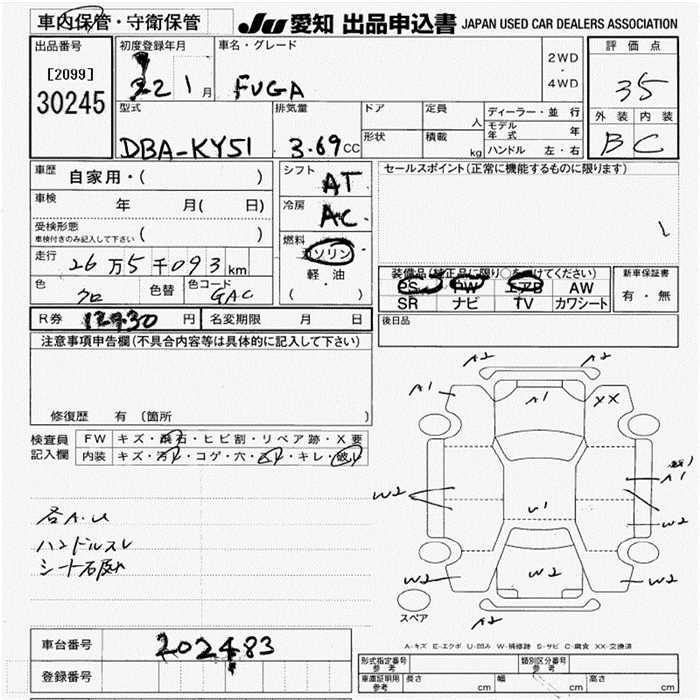 車内保管・守衛保管
JU 愛知 出品申込書 JAPAN USED CAR DEALERS ASSOCIATION
出品番号
[2099]
30245
初度登録年月
22 1 月
車名・グレード
FUGA
2WD
・
4WD
評価点
35
外装 内装
B C
型式
DBA-KY51
排気量
3.69 CC
ドア
形状
定員
人
積載
kg
ディーラー・並行
モデル年式 年
ハンドル 左・右
車歴 自家用・( )
車検 年 月( 日)
受検形態
車検付きのみ記入して下さい ( )
走行 26万5千093km
色 クロ 色替 色コード GAC
シフト
AT
冷房
AC
燃料
ガソリン
軽油
( ・ )
セールスポイント(正常に機能するものに限ります)
装備品(純正品に限り○を付けてください)
PS PW エアB AW
SR ナビ TV カワシート
新車保証書
有・無
R券 12930 円 名変期限 月 日
後日品
注意事項申告欄(不具合内容等は具体的に記入して下さい)
修復歴 有 (箇所 )
検査員
記入欄
FW キズ・飛石・ヒビ割・リペア跡・X要
内装 キズ・汚レ・コゲ・穴・スレ・キレ・破レ
各A.U
ハンドルスレ
A2 A2
A1 A1 XX
A1
W2 U1 W2
W2 W2 W2
A2
スペア
A-キズ E-エクボ U-凹み W-補修跡 S-サビ C-腐食 XX-交換済
車台番号 202483
登録番号
形式指定番号 参考
類別区分番号 参考
車庫証明用 参考 長さ cm 幅 cm 高さ cm